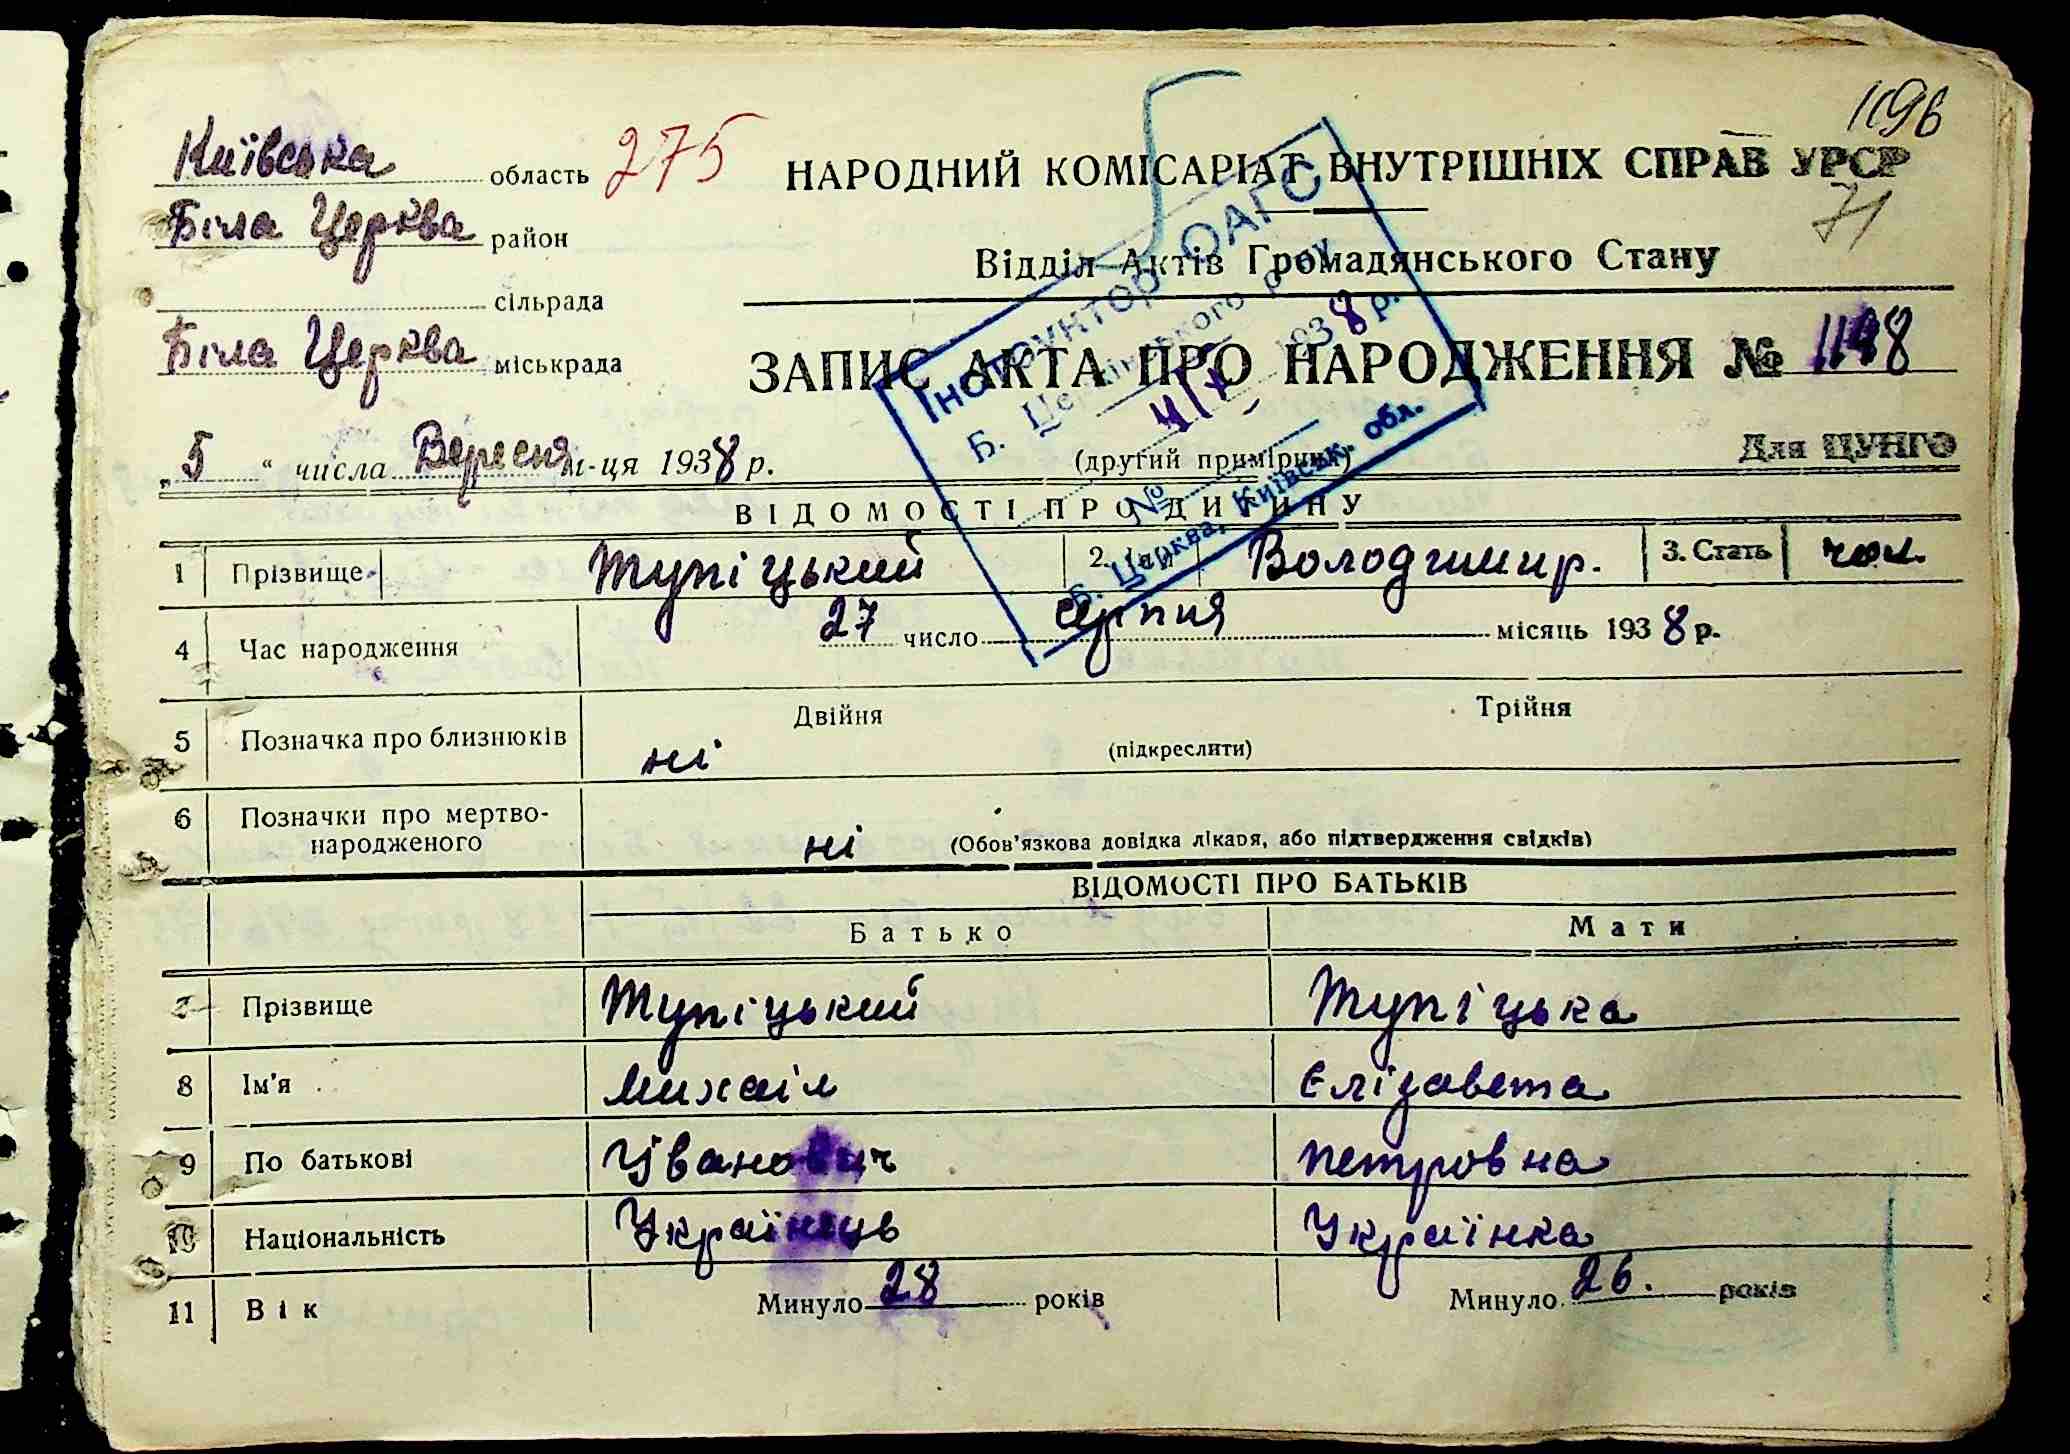 1196
Київська область 275 НАРОДНИЙ КОМІСАРІАТ ВНУТРІШНІХ СПРАВ УРСР
71
Біла Церква район
Відділ Актів Громадянського Стану
сільрада
Біла Церква міськрада
ЗАПИС АКТА ПРО НАРОДЖЕННЯ №
Інструктор ОАГС
Б. Церківського р-ну
1938 р.
№
Б. Церква, Київськ. обл.
„5“ числа Вересня м-ця 1938 р. (другий примірник) Для ЦУНГО
ВІДОМОСТІ ПРО ДИТИНУ
1 Прізвище Тупіцький 2. Володимир. 3. Стать чол.
4 Час народження 27 число серпня місяць 1938 р.
5 Позначка про близнюків ні Двійня (підкреслити) Трійня
6 Позначки про мертво-
народженого ні (Обов'язкова довідка лікаря, або підтвердження свідків)
ВІДОМОСТІ ПРО БАТЬКІВ
Батько Мати
7 Прізвище Тупіцький Тупіцька
8 Ім'я Михаіл Єлізавета
9 По батькові Іванович Петровна
10 Національність Українець Українка
11 Вік Минуло 28 років Минуло 26. років